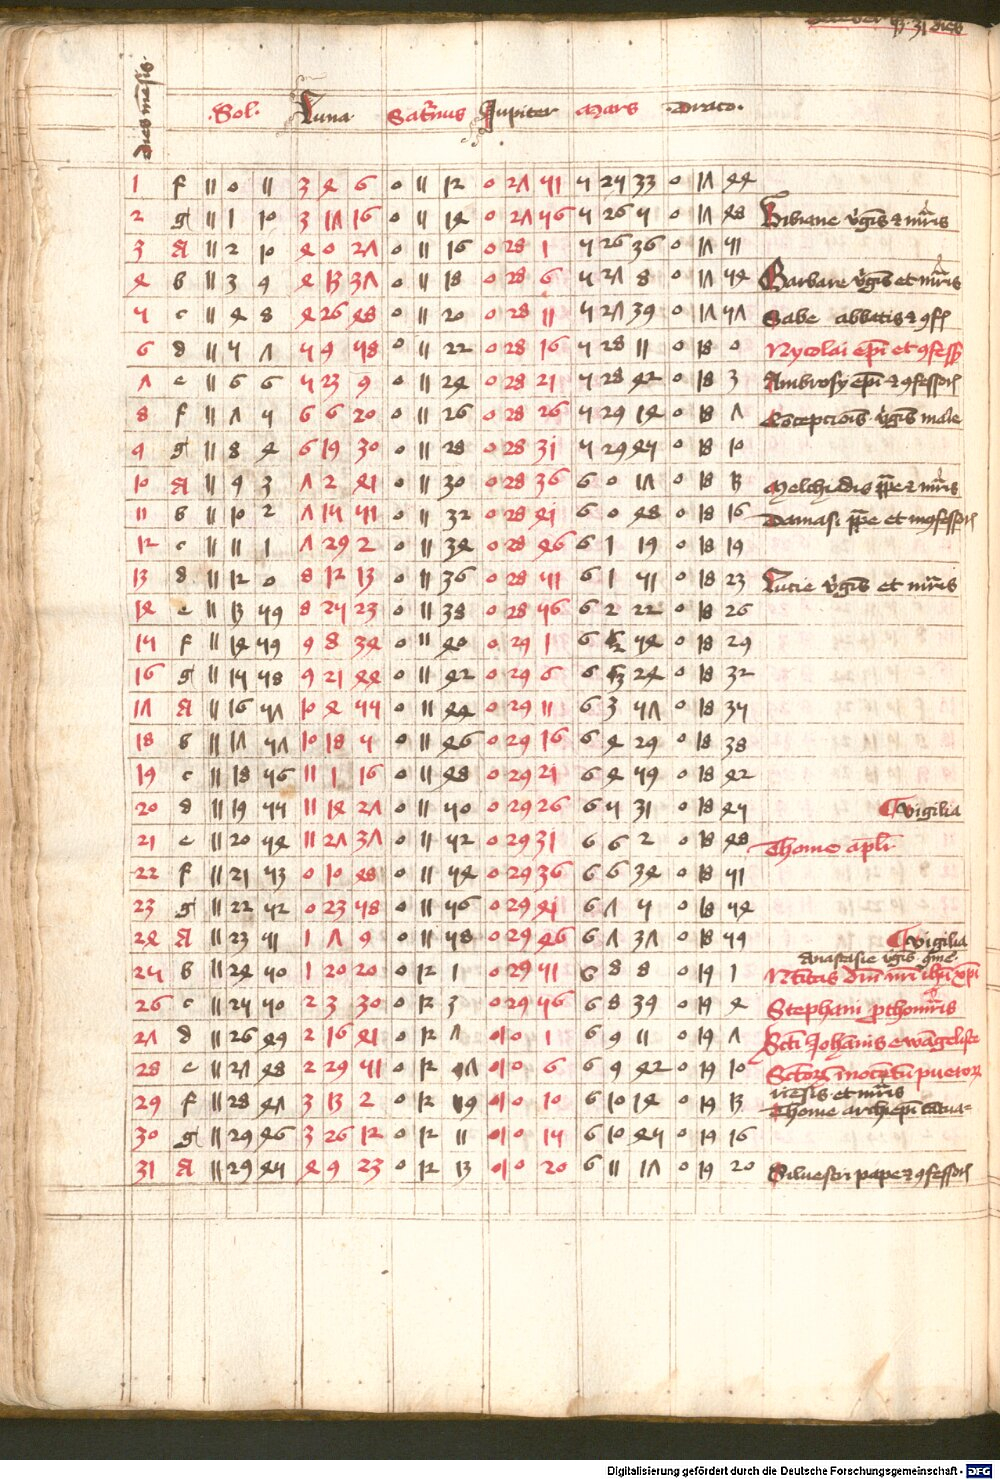 dies mensis
Sol. Luna Saturnus Jupiter Mars Draco.
1 f 11 0 11 3 4 6 0 11 12 0 27 51 5 25 33 0 17 44
2 g 11 1 10 3 17 16 0 11 14 0 27 56 5 26 5 0 17 48 Bibiane v̄gīs ⁊ mr̄is
3 A 11 2 10 4 0 27 0 11 16 0 28 1 5 26 36 0 17 51
4 b 11 3 9 4 13 37 0 11 18 0 28 6 5 27 8 0 17 54 Barbare v̄gīs et mr̄is
5 c 11 4 8 4 26 48 0 11 20 0 28 11 5 27 39 0 17 57 Sabe abbatis ⁊ ꝯf
6 d 11 5 7 5 9 58 0 11 22 0 28 16 5 28 11 0 18 0 Nycolai ep̄i et ꝯfess
7 e 11 6 6 5 23 9 0 11 24 0 28 21 5 28 42 0 18 3 Ambrosy ep̄i ⁊ ꝯfessor
8 f 11 7 5 6 6 20 0 11 26 0 28 26 5 29 14 0 18 7 Cōcepcionis v̄gīs marie
9 g 11 8 4 6 19 30 0 11 28 0 28 31 5 29 45 0 18 10
10 A 11 9 3 7 2 41 0 11 30 0 28 36 6 0 17 0 18 13 Melchiadis pp̄e ⁊ mr̄is
11 b 11 10 2 7 15 51 0 11 32 0 28 41 6 0 48 0 18 16 Damasi pp̄e et ꝯfessor
12 c 11 11 1 7 29 2 0 11 34 0 28 46 6 1 19 0 18 19
13 d 11 12 0 8 12 13 0 11 36 0 28 51 6 1 51 0 18 23 Lucie v̄gīs et mr̄is
14 e 11 13 59 8 25 23 0 11 38 0 28 56 6 2 22 0 18 26
15 f 11 14 59 9 8 34 0 11 40 0 29 1 6 2 54 0 18 29
16 g 11 15 58 9 21 44 0 11 42 0 29 6 6 3 24 0 18 32
17 A 11 16 57 10 4 55 0 11 44 0 29 11 6 3 57 0 18 35
18 b 11 17 57 10 18 5 0 11 46 0 29 16 6 4 29 0 18 38
19 c 11 18 56 11 1 16 0 11 48 0 29 21 6 4 59 0 18 42
20 d 11 19 55 11 14 27 0 11 50 0 29 26 6 5 31 0 18 45 vigilia
21 e 11 20 54 11 27 37 0 11 52 0 29 31 6 6 2 0 18 48 Thome apl̄i
22 f 11 21 53 0 10 48 0 11 54 0 29 36 6 6 34 0 18 51
23 g 11 22 52 0 23 58 0 11 56 0 29 41 6 7 5 0 18 54
24 A 11 23 51 1 7 9 0 11 58 0 29 46 6 7 37 0 18 59 vigilia
Anastasie v̄gīs
25 b 11 24 50 1 20 20 0 12 1 0 29 51 6 8 8 0 19 1
26 c 11 25 50 2 3 30 0 12 3 0 29 56 6 8 39 0 19 4 Stephani
27 d 11 26 49 2 16 41 0 12 7 1 0 1 6 9 11 0 19 7 Sc̄ti Johanis ewāgeliste
28 e 11 27 48 2 29 51 0 12 1 0 6 6 9 42 0 19 10 Sc̄tor̄ īnocētū pueror̄
29 f 11 28 47 3 13 2 0 12 9 1 0 10 6 10 14 0 19 13 Thome archiep̄i
30 g 11 29 46 3 26 12 0 12 11 1 0 15 6 10 45 0 19 16
31 A 11 29 45 4 9 23 0 12 13 1 0 20 6 11 17 0 19 20 Silvestri pape ⁊ ꝯfessor
Digitalisierung gefördert durch die Deutsche Forschungsgemeinschaft - DFG